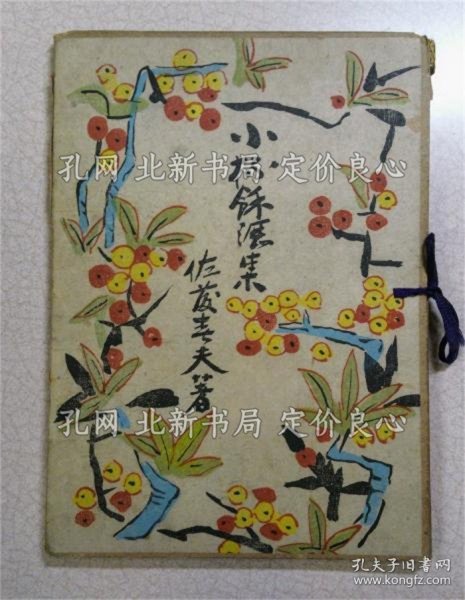 小杯餘瀝集
佐藤春夫著
孔网 北新书局 定价良心
孔网 北新书局 定价良心
孔夫子旧书网
www.kongfz.com